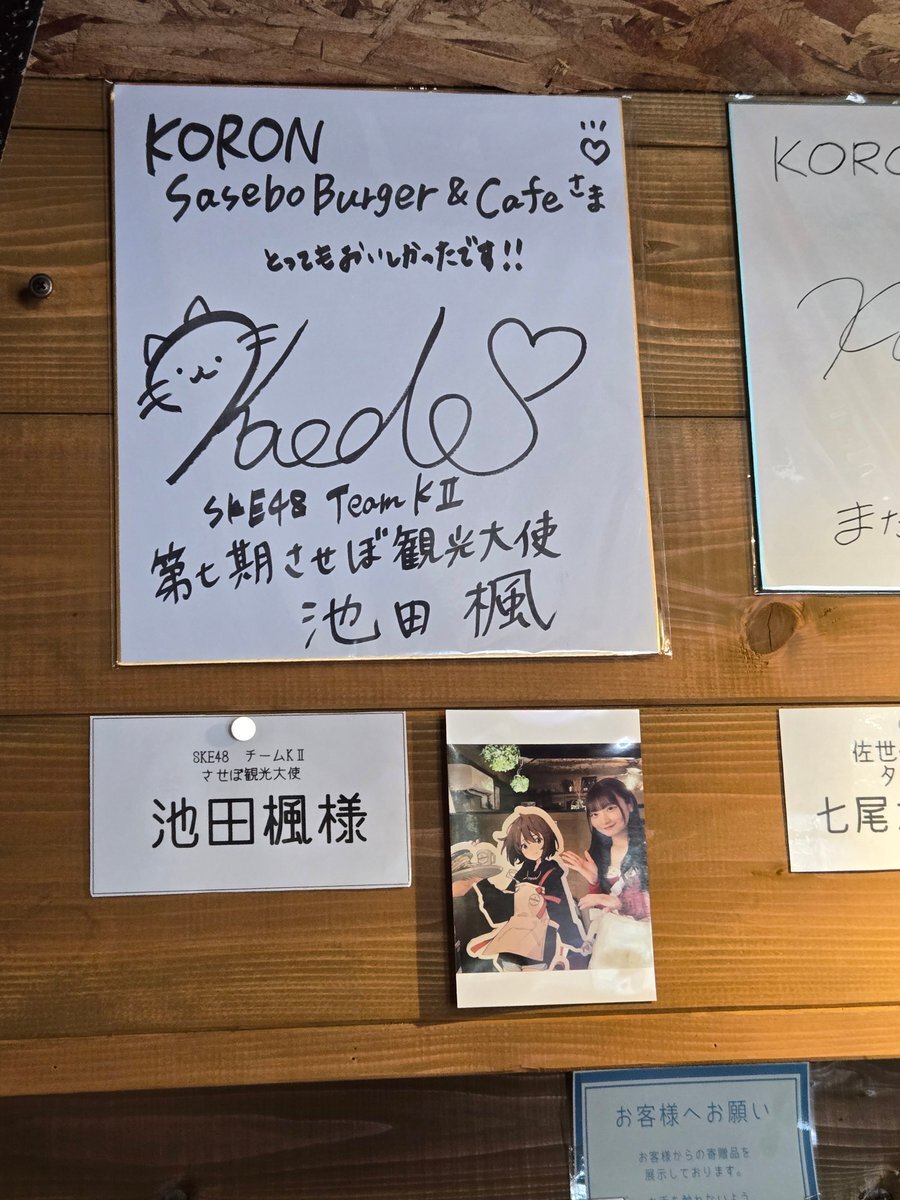 KORON
Sasebo Burger & Cafe さま
とってもおいしかったです!!
Kaede
SKE48 Team KⅡ
第七期させぼ観光大使
池田 楓
KORO
また
SKE48 チームKⅡ
させぼ観光大使
池田楓様
佐世
タ
七尾
お客様へお願い
お客様からの寄贈品を
展示しております。